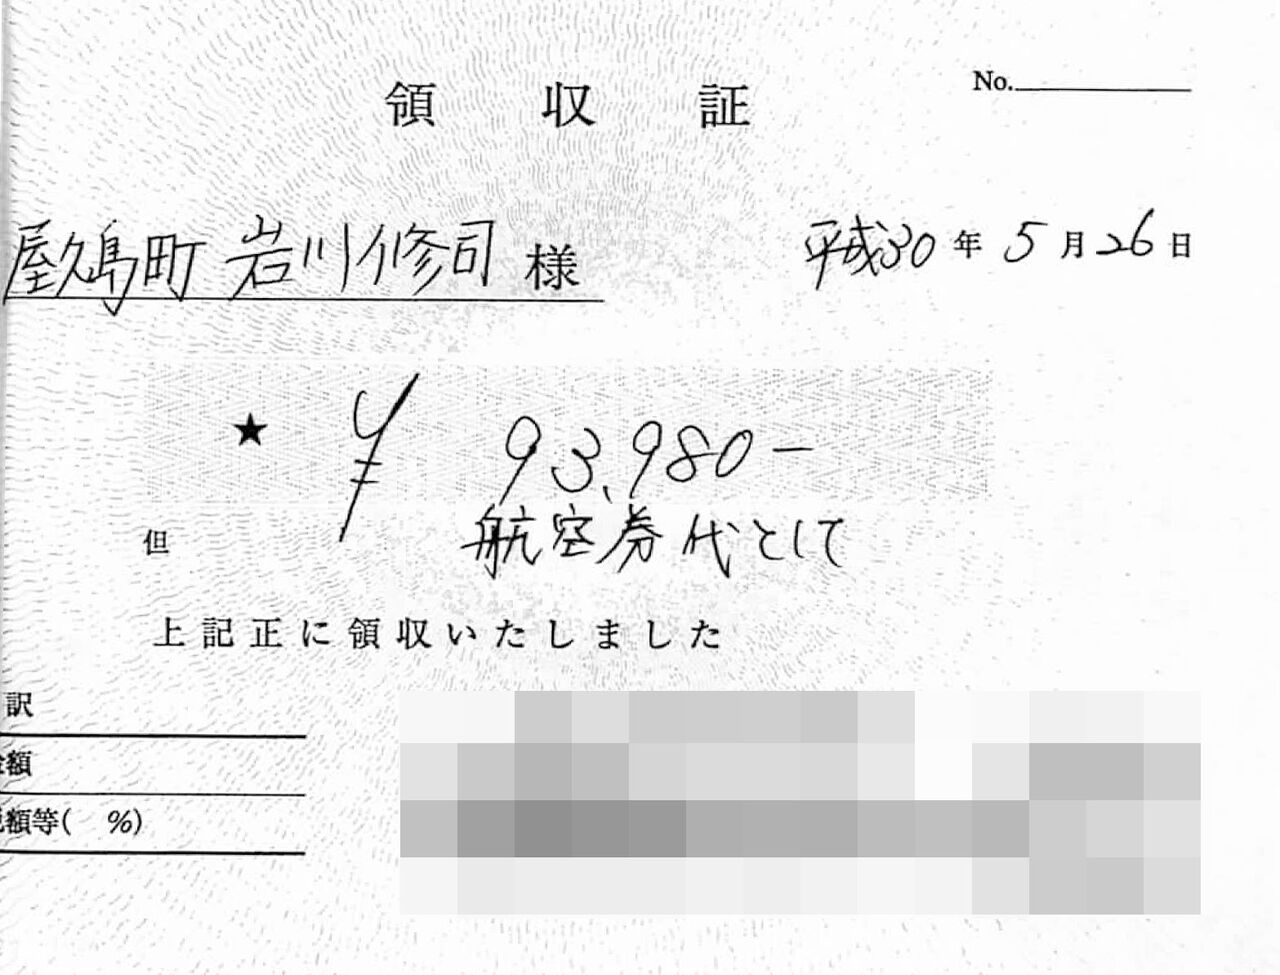 領収証
No.
屋久島町 岩川修司 様
平成30年5月26日
★ ¥ 93,980-
但 航空券代として
上記正に領収いたしました
訳
金額
税額等( %)